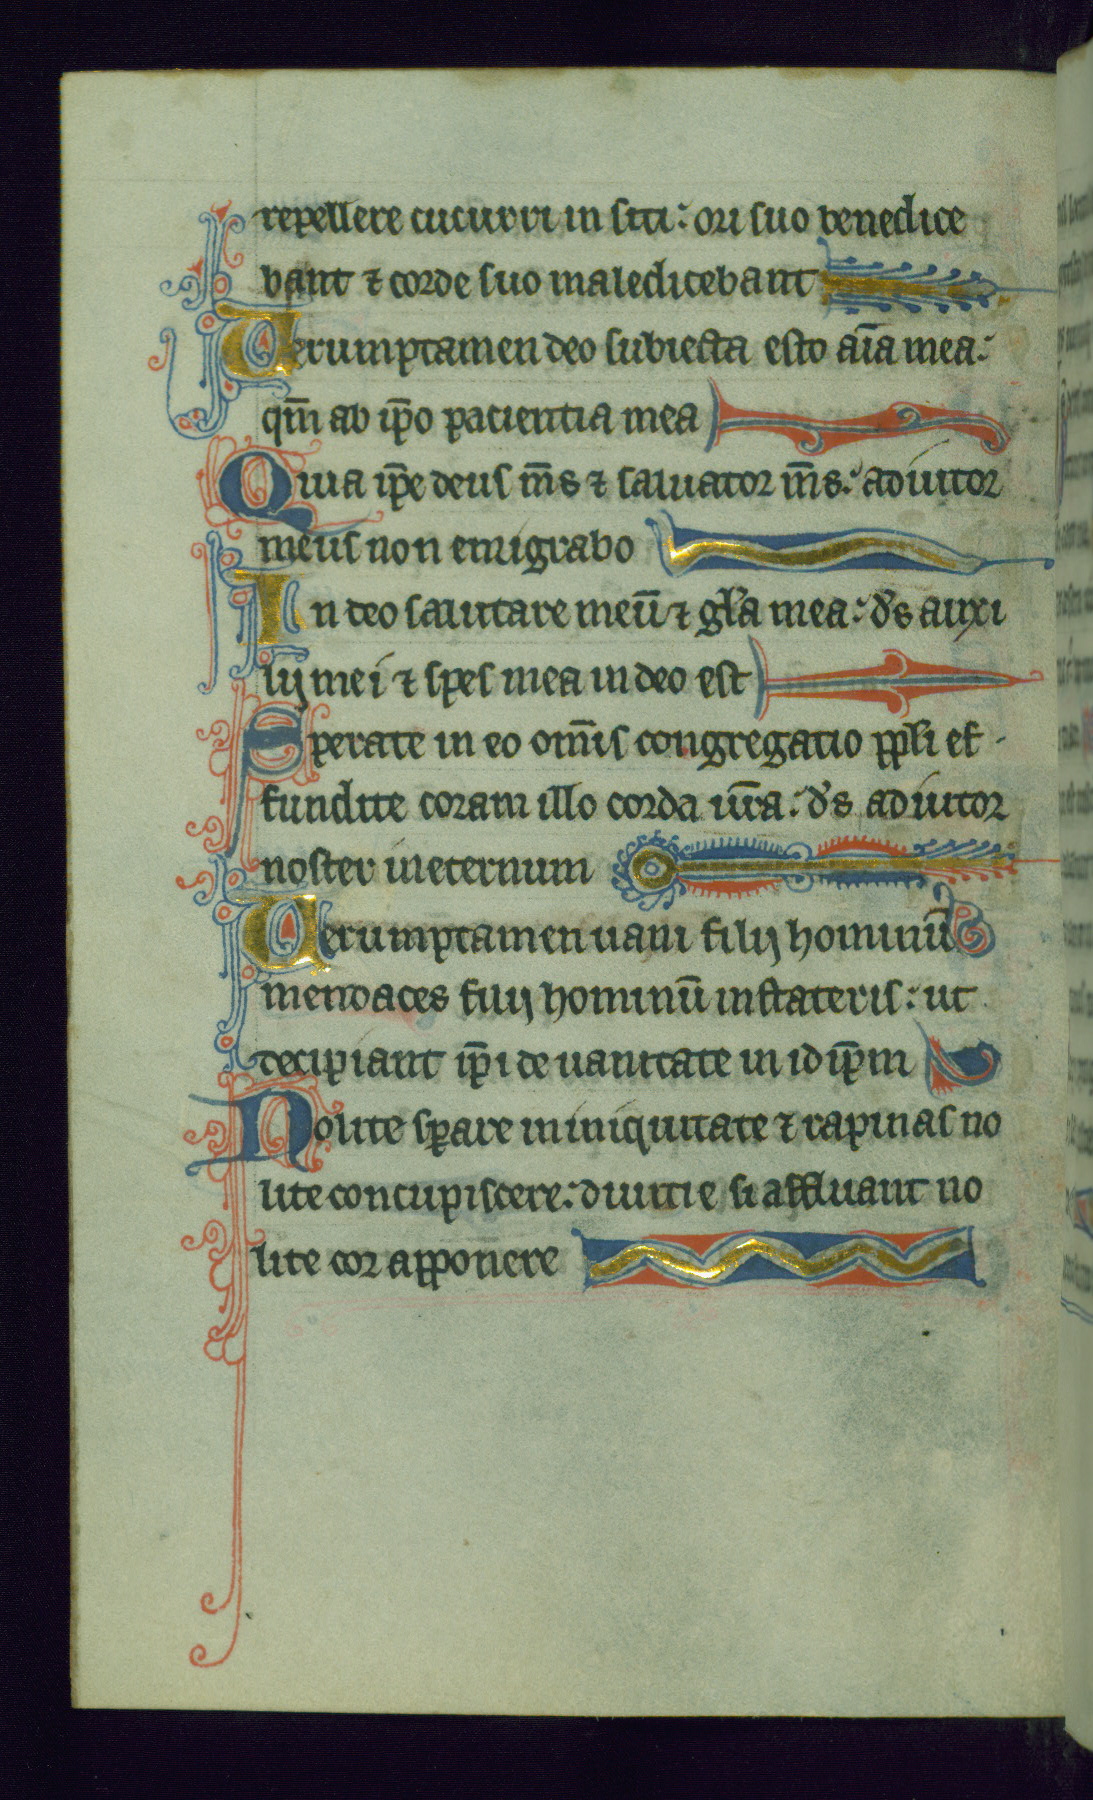 repellere cucurri in siti: ori suo benedice
bant ⁊ corde suo maledicebant
Uerumptamen deo subiecta esto aīa mea:
qm̄ ab ip̄o pacientia mea
Quia ip̄e deus m̄s ⁊ saluator m̄s: adiutor
meus non emigrabo
In deo salutare meū ⁊ gl̄a mea: d̄s auxi
lij mei ⁊ spes mea in deo est
Sperate in eo om̄is congregatio pp̄li ef
fundite coram illo corda ur̄a: d̄s adiutor
noster in eternum
Uerumptamen uani filij hominū
mendaces filij hominū in stateris: ut
decipiant ip̄i de uanitate in id ip̄m
Nolite sp̄are in iniquitate ⁊ rapinas no
lite concupiscere: diuitie si affluant no
lite cor apponere